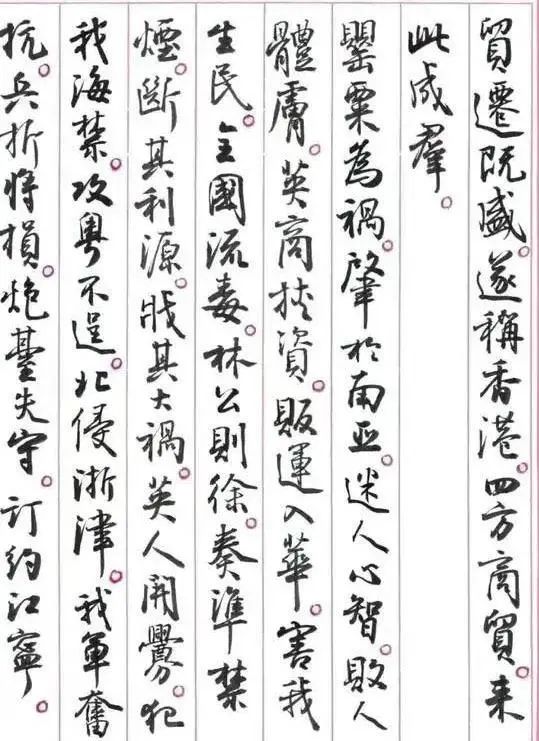 貿遷既盛。遂稱香港。四方商貿。来
此成羣。
罌粟為禍。肇於南亚。迷人心智。敗人
體膚。英商挟資。販運入華。害我
生民。全國流毒。林公則徐。奏準禁
煙。斷其利源。戕其大禍。英人開釁。犯
我海禁。攻粵不逞。北侵浙津。我軍奮
抗。兵折将損。炮臺失守。訂約江寧。